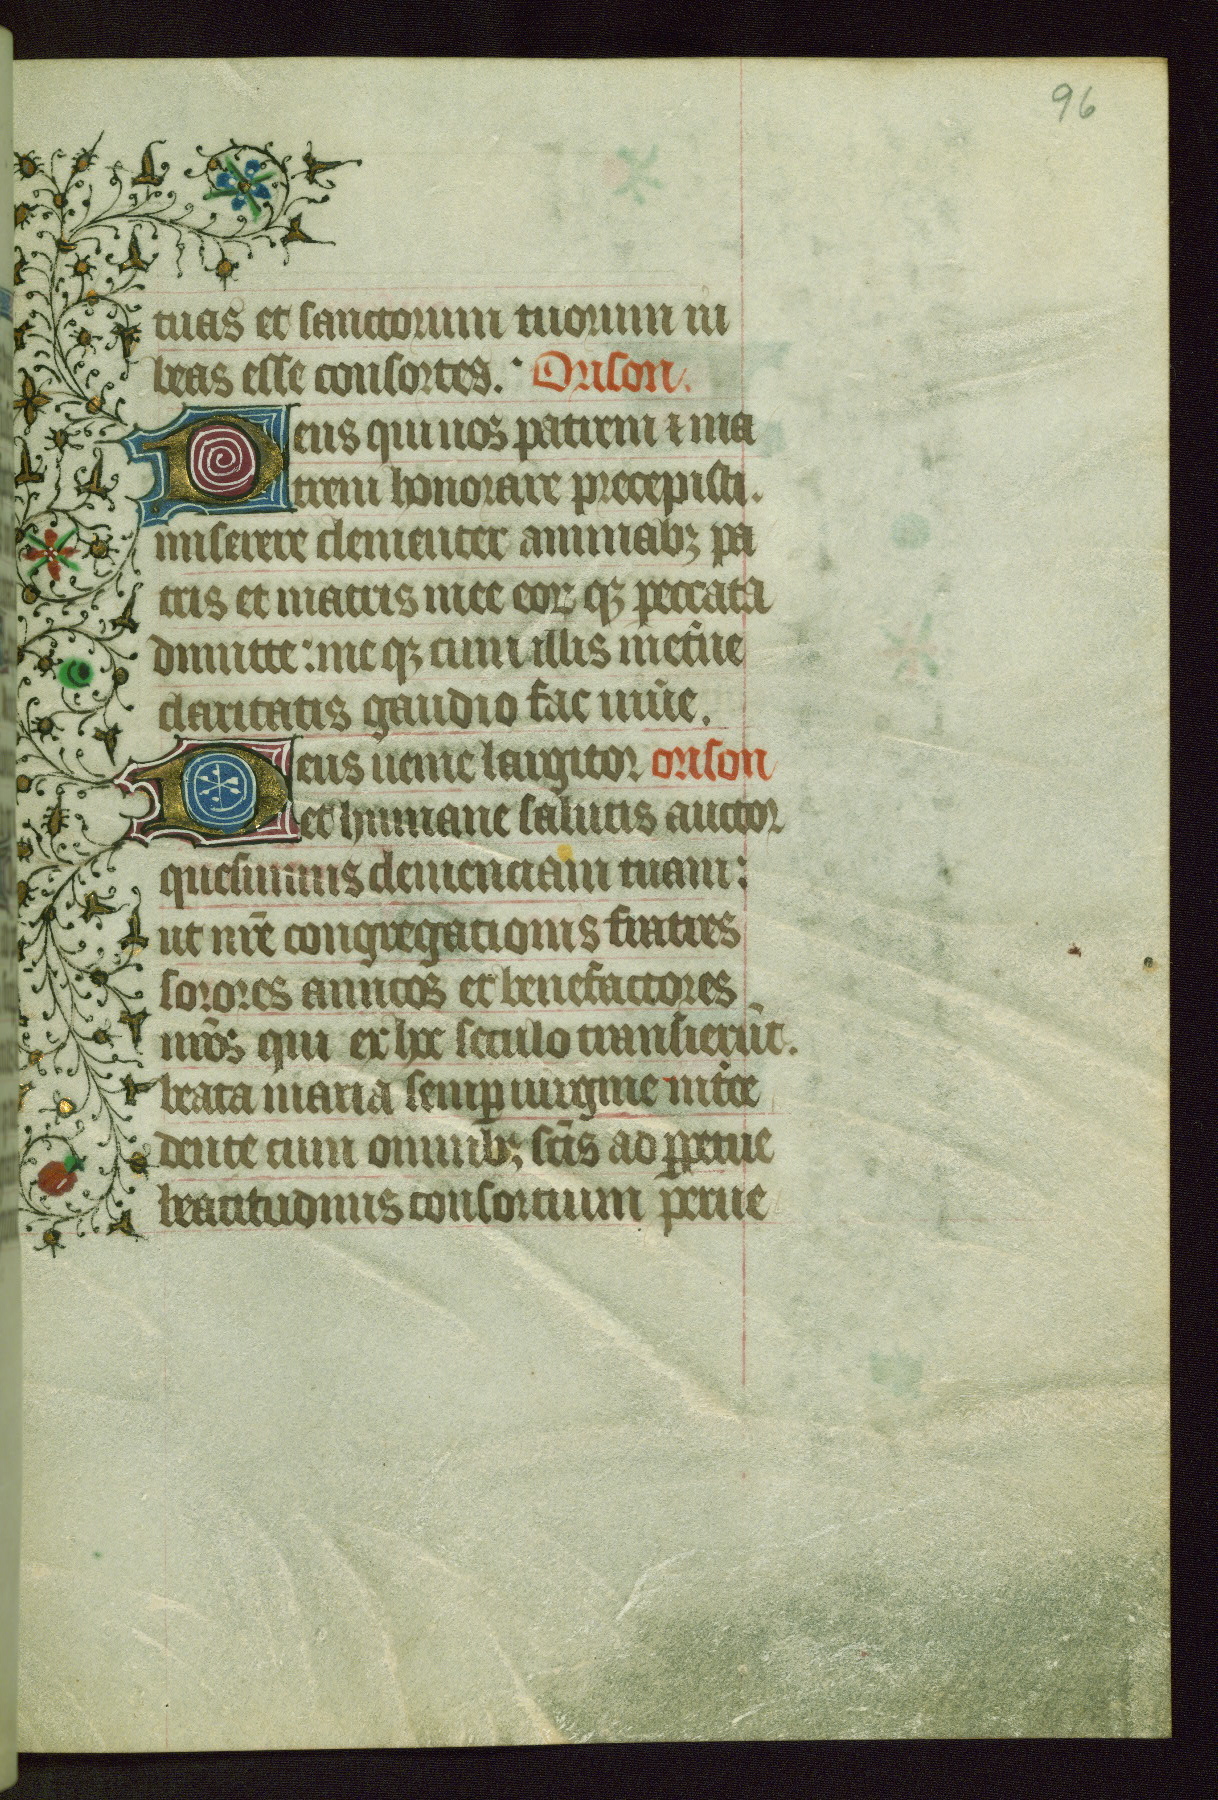 96
tuas et sanctorum tuorum iu
beas esse consortes. Orison.
Deus qui nos patrem ⁊ ma
trem honorare precepisti.
miserere clementer animabꝫ pa
tris et matris mee eoꝝ qꝫ peccata
dimitte: me qꝫ cum illis in et̄ne
claritatis gaudio fac iuūe.
Deus uenie largitor orison
et humane salutis auctor
quesumus clemenciam tuam:
ut nr̄e congregationis fratres
sorores amicos et benefactores
nr̄os qui ex hoc seculo transierūt.
beata maria semꝑ uirgine int̄ce
dente cum omnibꝫ sc̄is ad ꝑpetue
beatitudinis consortium perue